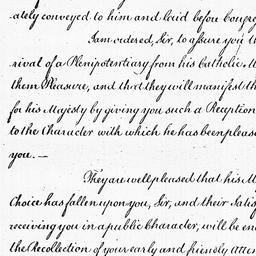 ately conveyed to him and laid before Congre
I am ordered, Sir, to assure you th
rival of a Plenipotentiary from his Catholic M
them Pleasure, and that they will manifest th
for his Majesty by giving you such a Reception
to the Character with which he has been please
you. —
They are well pleased that his M
Choice has fallen upon you, Sir, and their Satis
receiving you in a public Character, will be en
the Recollection of your early and friendly Atten